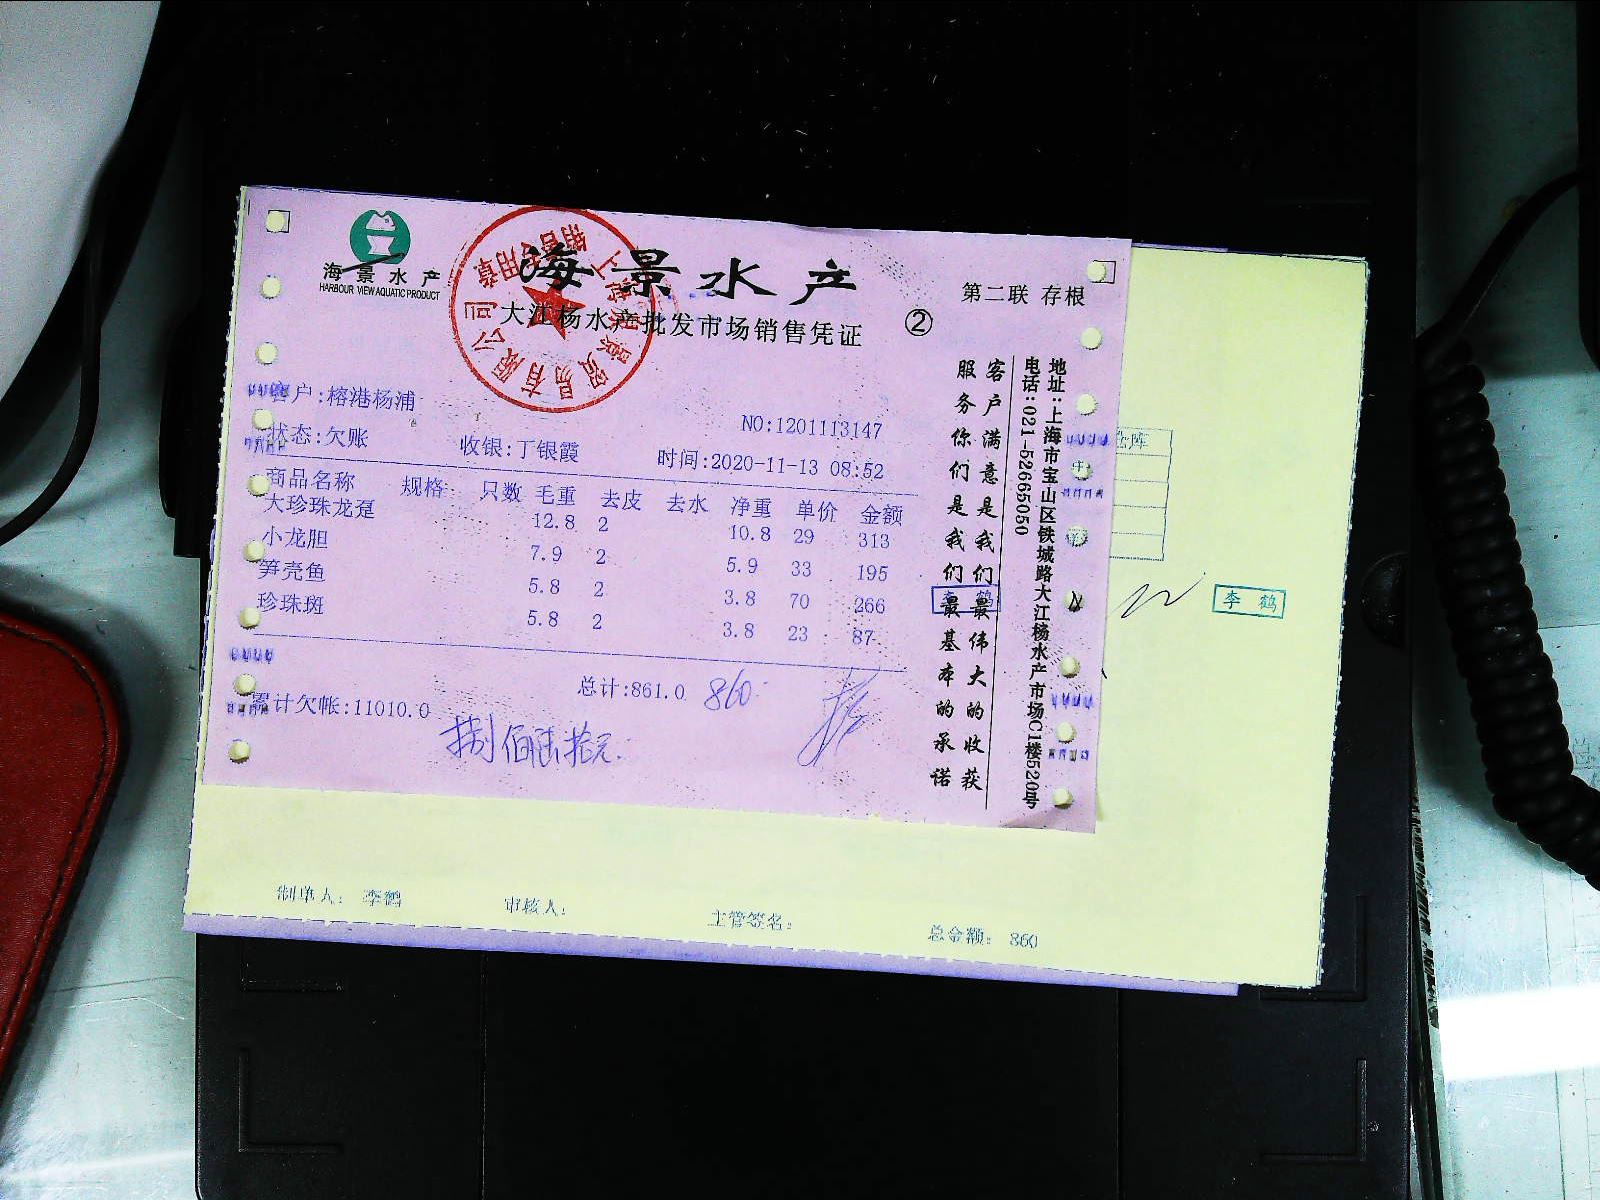 海景水产
HARBOUR VIEW AQUATIC PRODUCT
海景水产
大江杨水产批发市场销售凭证
②
第二联 存根
客户:榕港杨浦
NO:1201113147
状态:欠账 收银:丁银霞 时间:2020-11-13 08:52
商品名称 规格 只数 毛重 去皮 去水 净重 单价 金额
大珍珠龙趸 12.8 2 10.8 29 313
小龙胆 7.9 2 5.9 33 195
笋壳鱼 5.8 2 3.8 70 266
珍珠斑 5.8 2 3.8 23 87
总计:861.0 860
累计欠帐:11010.0
捌佰陆拾元.
客户满意是我们最伟大的收获
服务你们是我们最基本的承诺
地址:上海市宝山区铁城路大江杨水产市场C1楼520号
电话:021-52665050
李鹤
制单人: 李鹤 审核人: 主管签名: 总金额: 860